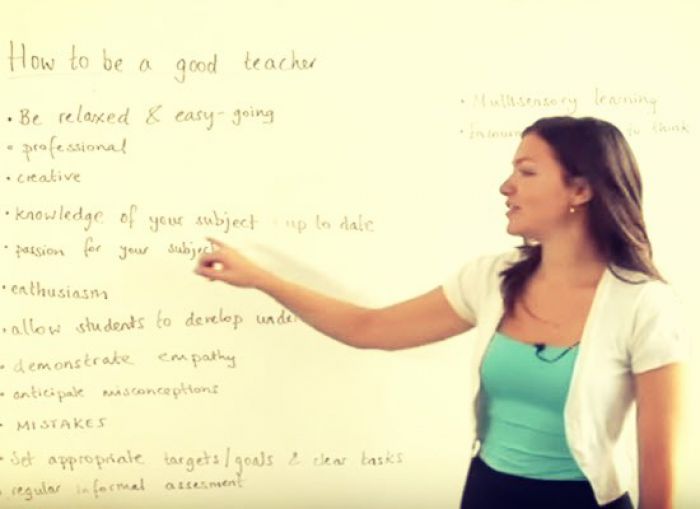 How to be a good teacher
• Be relaxed & easy-going
• professional
• creative
• knowledge of your subject - up to date
• passion for your subject
• enthusiasm
• allow students to develop
• demonstrate empathy
• anticipate misconceptions
• MISTAKES
• Set appropriate targets/goals & clear tasks
• regular informal assesment
• Multisensory learning
• think